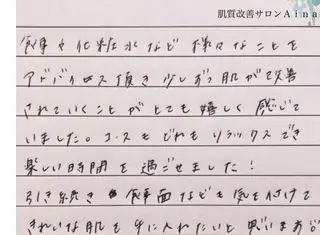 肌質改善サロンAina
食事や化粧水など 様々なことを
アドバイス頂き少しずつ肌が改善
されていくことがとても嬉しく感じて
いました。コースもどれもリラックスでき
楽しい時間を過ごせました!
引き続き 食事面なども気を付けて
きれいな肌を手に入れたいと思います。